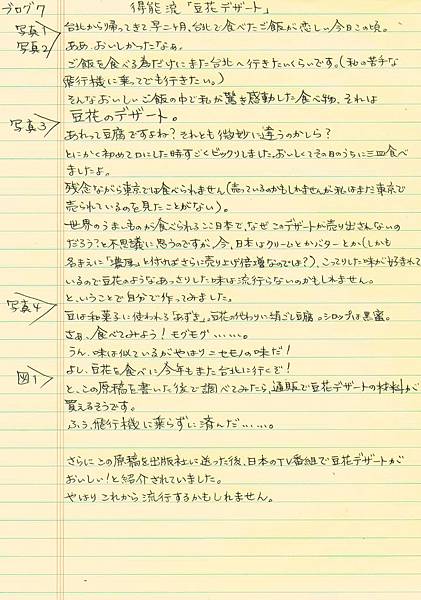 ブログ7 得能流「豆花デザート」
写真1 台北から帰ってきて早二ヶ月、台北で食べたご飯が恋しい今日この頃。
写真2 ああ、おいしかったなぁ。
ご飯を食べる為だけにまた台北へ行きたいくらいです。(私の苦手な
飛行機に乗ってでも行きたい。)
そんなおいしいご飯の中で私が驚き感動した食べ物、それは
写真3 豆花のデザート。
あれって豆腐ですよね?それとも微妙に違うのかしら?
とにかく初めて口にした時すごくビックリしましたよ。おいしくてその日のうちに三皿食べ
ましたよ。
残念ながら東京では食べられません(売っているのかもしれませんが、私はまだ東京で
売られているのを見たことがない)。
世界のうまいものが食べられるここ日本で、なぜこのデザートが売り出されないの
だろう?と不思議に思うのですが、今、日本はクリームとかバターとか(しかも
名まえに「濃厚」と付ければさらに売り上げ倍増なのでは?)、こってりした味が好まれて
いるので豆花のようなあっさりした味は流行らないのかもしれません。
写真4 と、いうことで自分で作ってみました。
豆は和菓子に使われる「あずき」、豆花の代わりに絹ごし豆腐。シロップは黒蜜。
さぁ、食べてみよう!モグモグ……。
うん、味は似ているがやはりニセモノの味だ!
図1 よし、豆花を食べに今年もまた台北に行くぞ!
と、この原稿を書いた後で調べてみたら、通販で豆花デザートの材料が
買えるそうです。
ふぅ、飛行機に乗らずに済んだ……。
さらにこの原稿を出版社に送った後、日本のTV番組で豆花デザートが
おいしい!と紹介されていました。
やはりこれから流行するかもしれません。